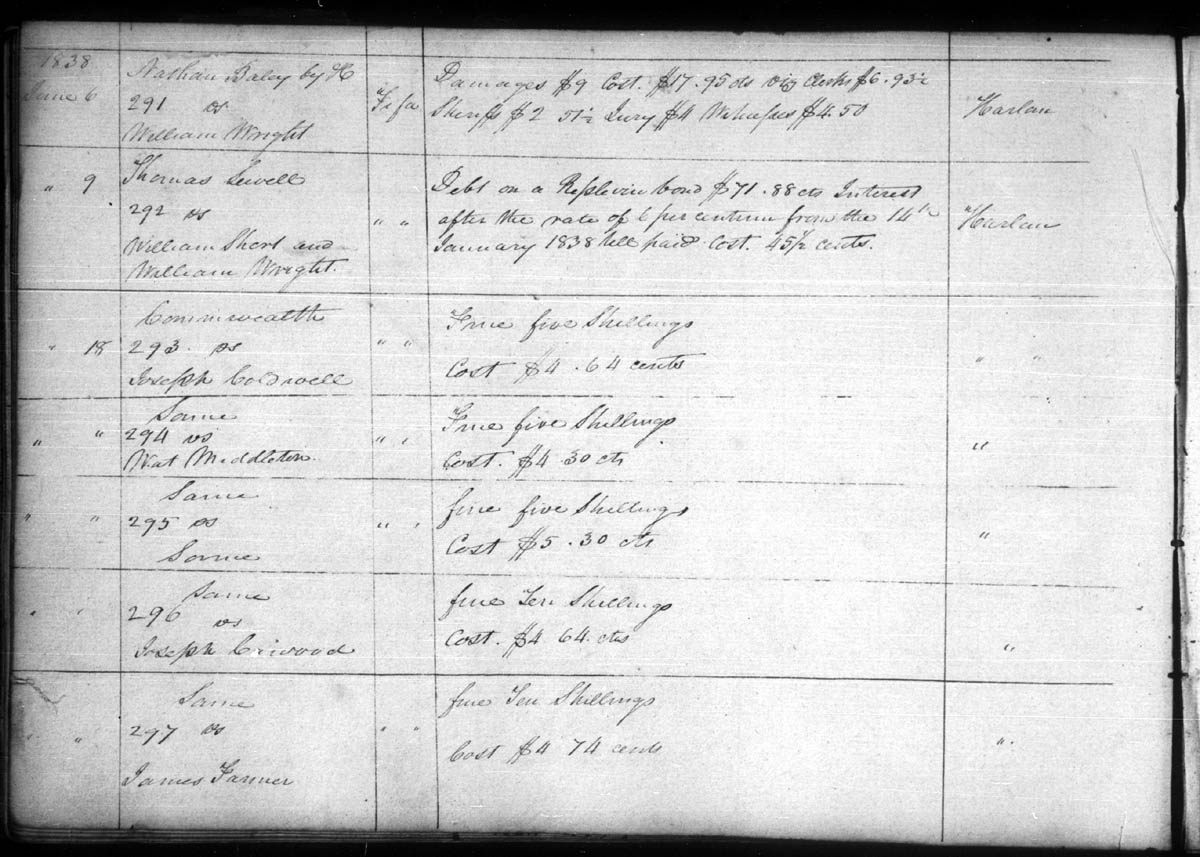 1838
June 6
Nathan Baley by &c
291 vs
William Wright
Fi fa
Damages $9 Cost. $17.95 cts viz Clerks $6.93½
Sheriffs $2 51½ Jury $4 Witnesses $4.50
Harlan
" 9
Thomas Sewell
292 vs
William Short and
William Wright.
" "
Debt on a Replevin bond $71.88 cts Interest
after the rate of 6 per centum from the 14th
January 1838 till paid Cost. 45½ cents.
"Harlan
" 18
Commwealth
293. vs
Joseph Coldwell
" "
Fine five Shillings
Cost $4.64 cents
" "
" "
Same
294 vs
Wat Middleton.
" "
Fine five Shillings
Cost. $4.30 cts
"
" "
Same
295 vs
Same
" "
fine five Shillings
Cost $5.30 cts
"
" "
Same
296 vs
Joseph
fine Ten Shillings
Cost. $4 64. cts
"
" "
Same
297 vs
James Farmer
" "
fine Ten Shillings
Cost $4 74 cents
"